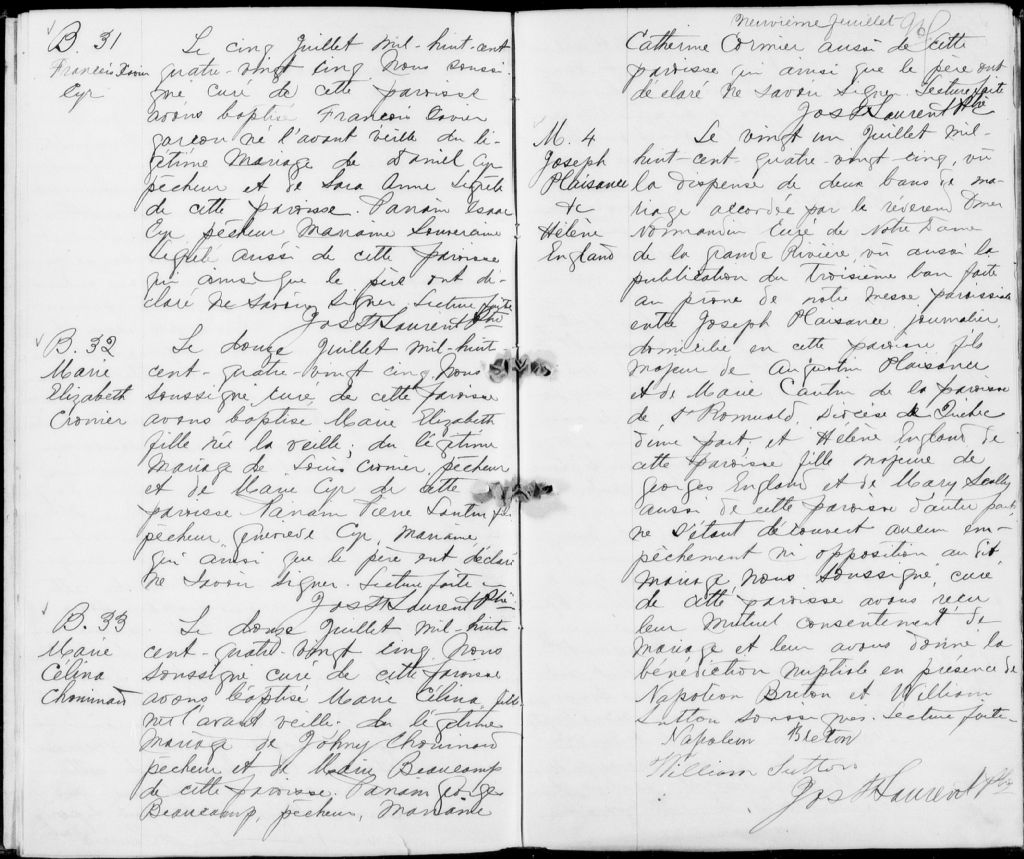 B. 31
François Xavier
Cyr
Le cinq Juillet mil-huit-cent
quatre-vingt cinq Nous soussi-
gné curé de cette paroisse
avons baptisé François Xavier
garçon né l'avant veille du lé-
gitime Mariage de Daniel Cyr
pêcheur et de Sara Anne
de cette paroisse. Parrain Isaac
Cyr pêcheur Marraine
aussi de cette paroisse
qui ainsi que le père ont dé-
claré ne savoir signer. Lecture faite
Jos St Laurent Ptre
B. 32
Marie
Elizabeth
Cronier
Le douze Juillet mil-huit
cent-quatre-vingt cinq Nous
soussigné curé de cette paroisse
avons baptisé Marie Elizabeth
fille née la veille, du légitime
Mariage de Louis Cronier pêcheur
et de Marie Cyr de cette
paroisse Parrain
pêcheur, Geneviève Cyr, Marraine
qui ainsi que le père ont déclaré
ne savoir signer. Lecture faite
Jos St Laurent Ptre
B. 33
Marie
Célina
Chouinard
Le douze Juillet mil-huit
cent-quatre-vingt cinq Nous
soussigné curé de cette paroisse
avons baptisé Marie Célina, fille
née avant veille du légitime
Mariage de Johny Chouinard
pêcheur et de Marie Beaucamp
de cette paroisse. Parrain
Beaucamp, pêcheur, Marraine
Neuvième feuillet
Catherine Cormier aussi de cette
paroisse qui ainsi que le père ont
déclaré ne savoir signer. Lecture faite
Jos St Laurent Ptre
M. 4
Joseph
Plaisance
&
Hélène
England
Le vingt un Juillet mil-
huit-cent-quatre-vingt-cinq, vu
la dispense de deux bans de ma-
riage accordée par le révérend Omer
Normandin Curé de Notre Dame
de la grande Rivière, vu aussi la
publication du troisième ban faite
au prône de notre messe paroissiale
entre Joseph Plaisance, journalier,
domicilié en cette paroisse fils
majeur de Augustin Plaisance
et de Marie Cantin de la paroisse
de St Romuald, Diocèse de Québec
d'une part, et Hélène England de
cette paroisse fille majeure de
Georges England et de Mary Scully
aussi de cette paroisse d'autre part,
ne s'étant découvert aucun em-
pêchement ni opposition au dit
mariage Nous soussigné curé
de cette paroisse avons reçu
leur mutuel consentement de
mariage et leur avons donné la
bénédiction nuptiale en présence de
Napoléon Breton et William
Sutton soussignés. Lecture faite.
Napoleon Breton
William Sutton
Jos St Laurent Ptre